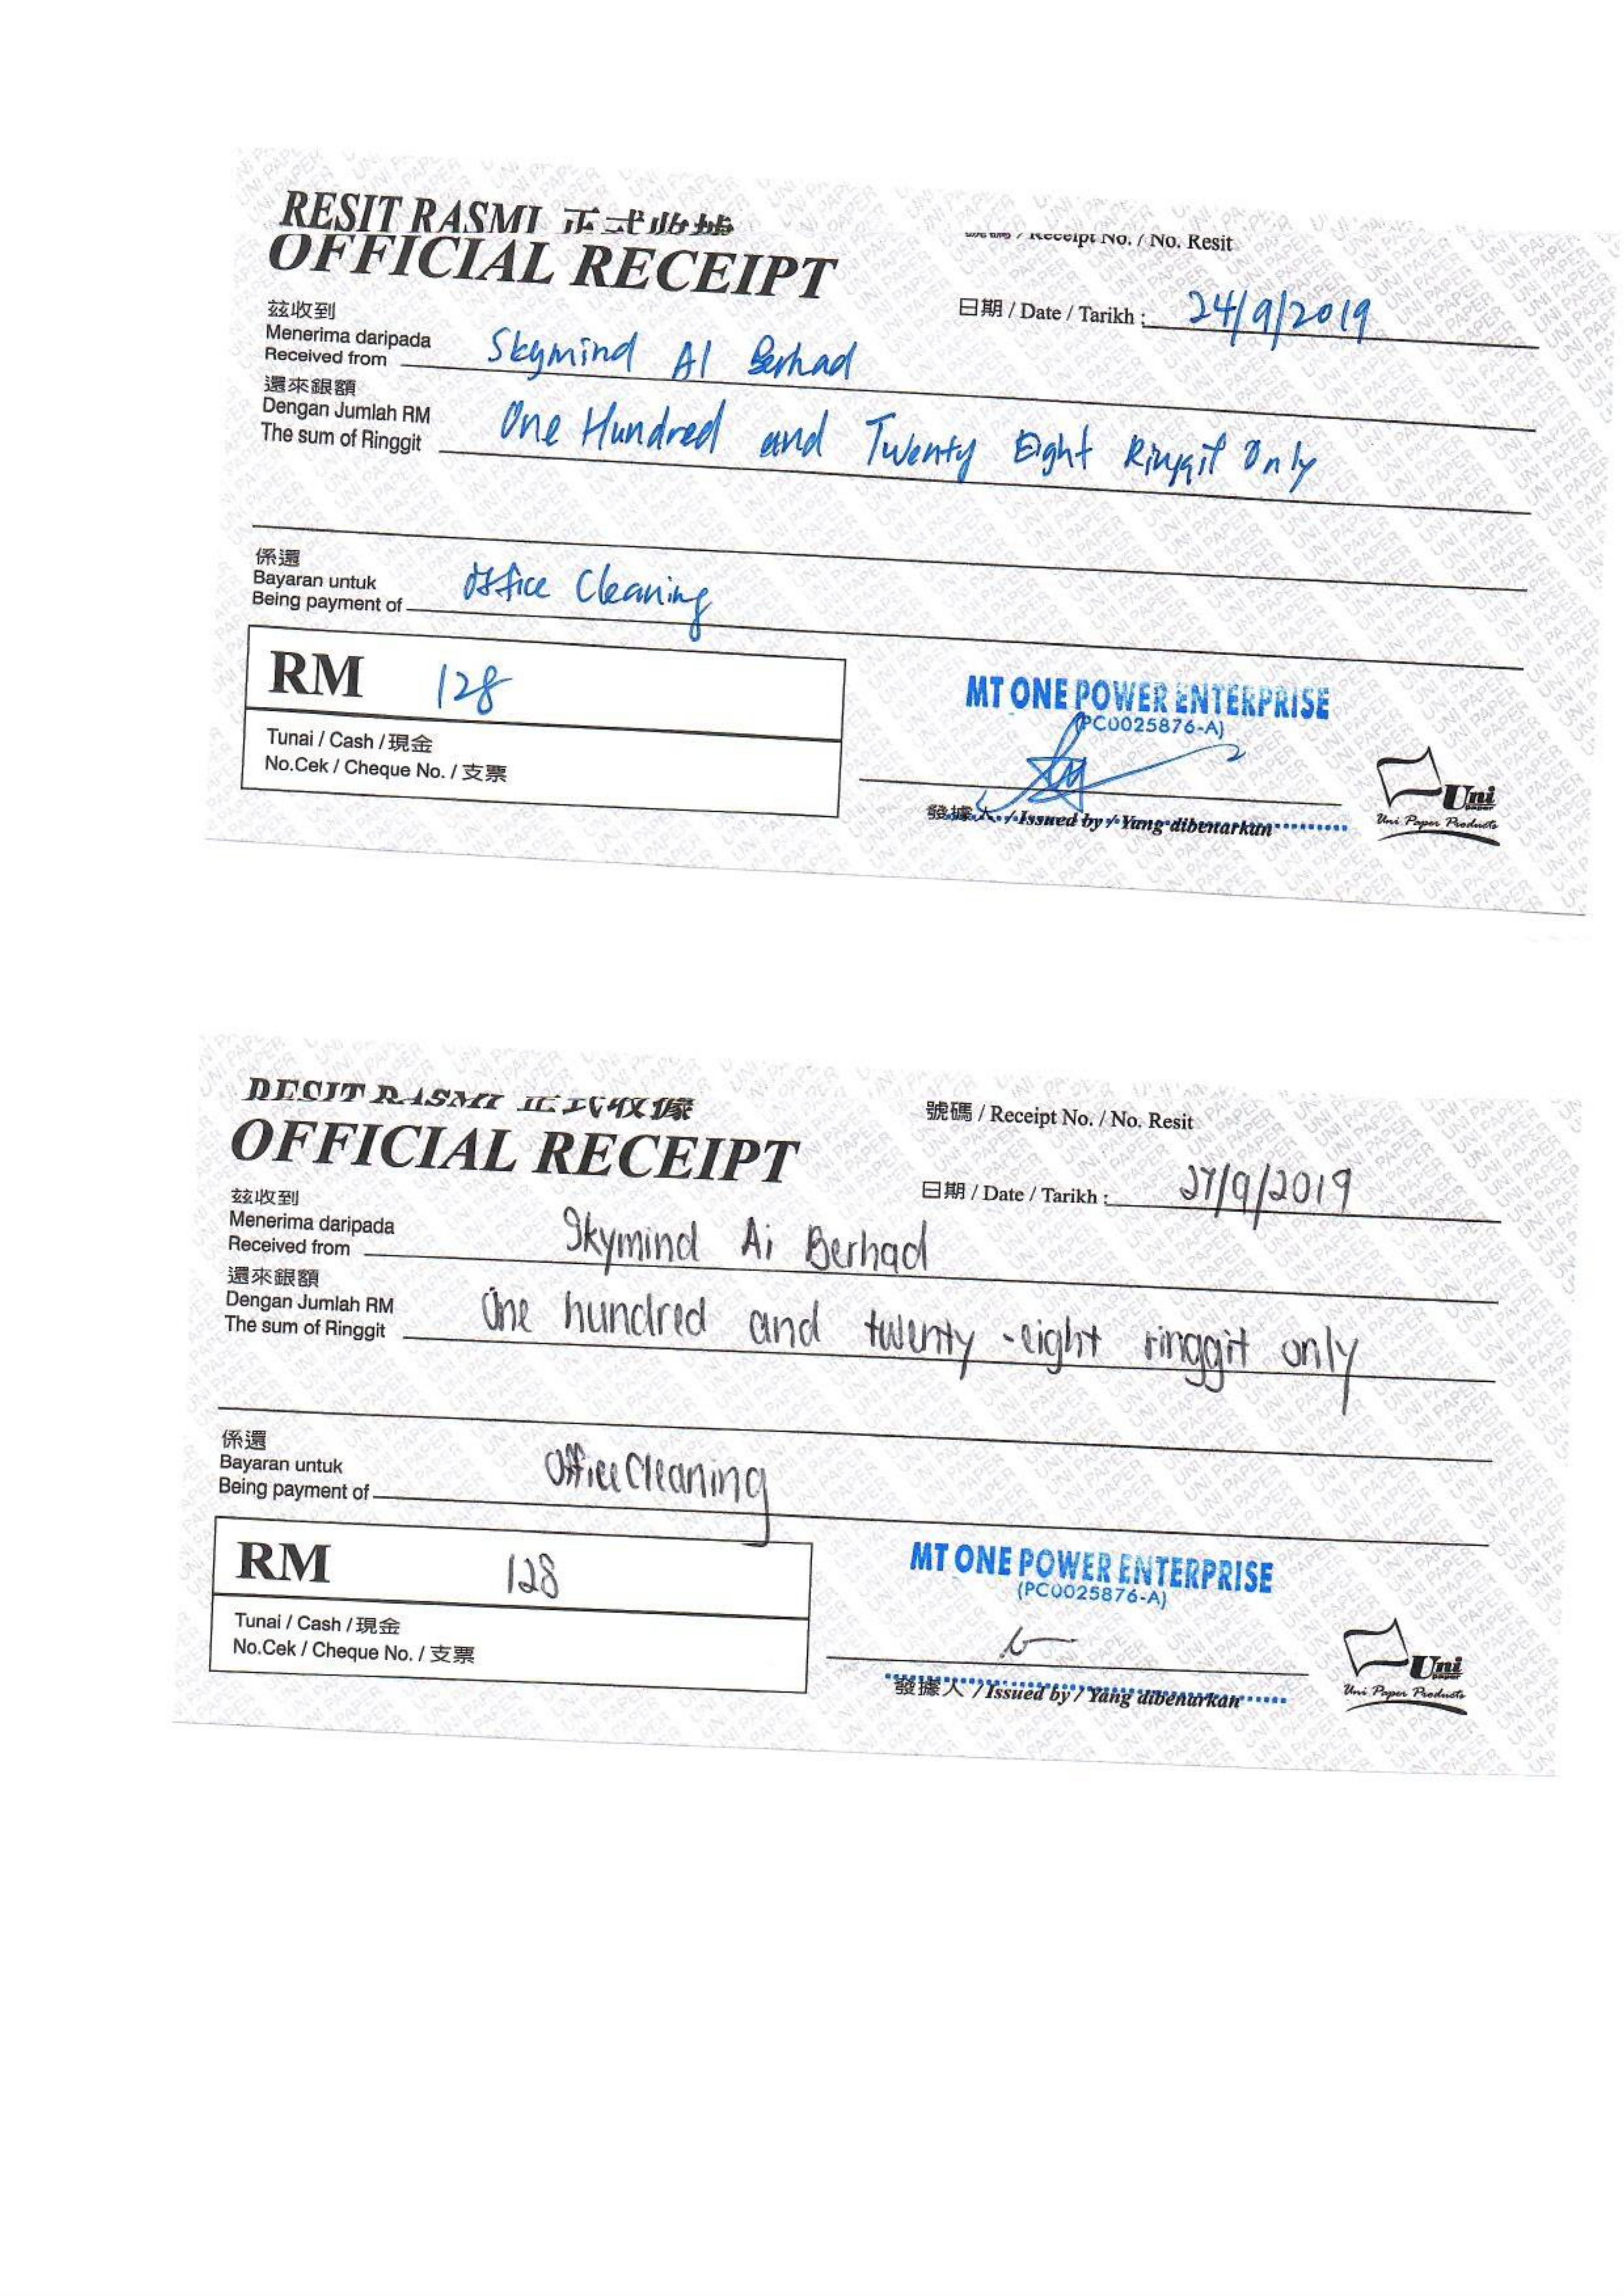 RESIT RASMI 正式收據
OFFICIAL RECEIPT
號碼 / Receipt No. / No. Resit
日期 / Date / Tarikh : 24/9/2019
茲收到
Menerima daripada
Received from Skymind AI Berhad
還來銀額
Dengan Jumlah RM
The sum of Ringgit One Hundred and Twenty Eight Ringgit Only
係還
Bayaran untuk
Being payment of Office Cleaning
RM 128
Tunai / Cash / 現金
No.Cek / Cheque No. / 支票
MT ONE POWER ENTERPRISE
(PC0025876-A)
發據人 / Issued by / Yang dibenarkan
Uni
paper
Uni Paper Products
RESIT RASMI 正式收據
OFFICIAL RECEIPT
號碼 / Receipt No. / No. Resit
日期 / Date / Tarikh : 27/9/2019
茲收到
Menerima daripada
Received from Skymind Ai Berhad
還來銀額
Dengan Jumlah RM
The sum of Ringgit One hundred and twenty-eight ringgit only
係還
Bayaran untuk
Being payment of Office Cleaning
RM 128
Tunai / Cash / 現金
No.Cek / Cheque No. / 支票
MT ONE POWER ENTERPRISE
(PC0025876-A)
發據人 / Issued by / Yang dibenarkan
Uni
paper
Uni Paper Products